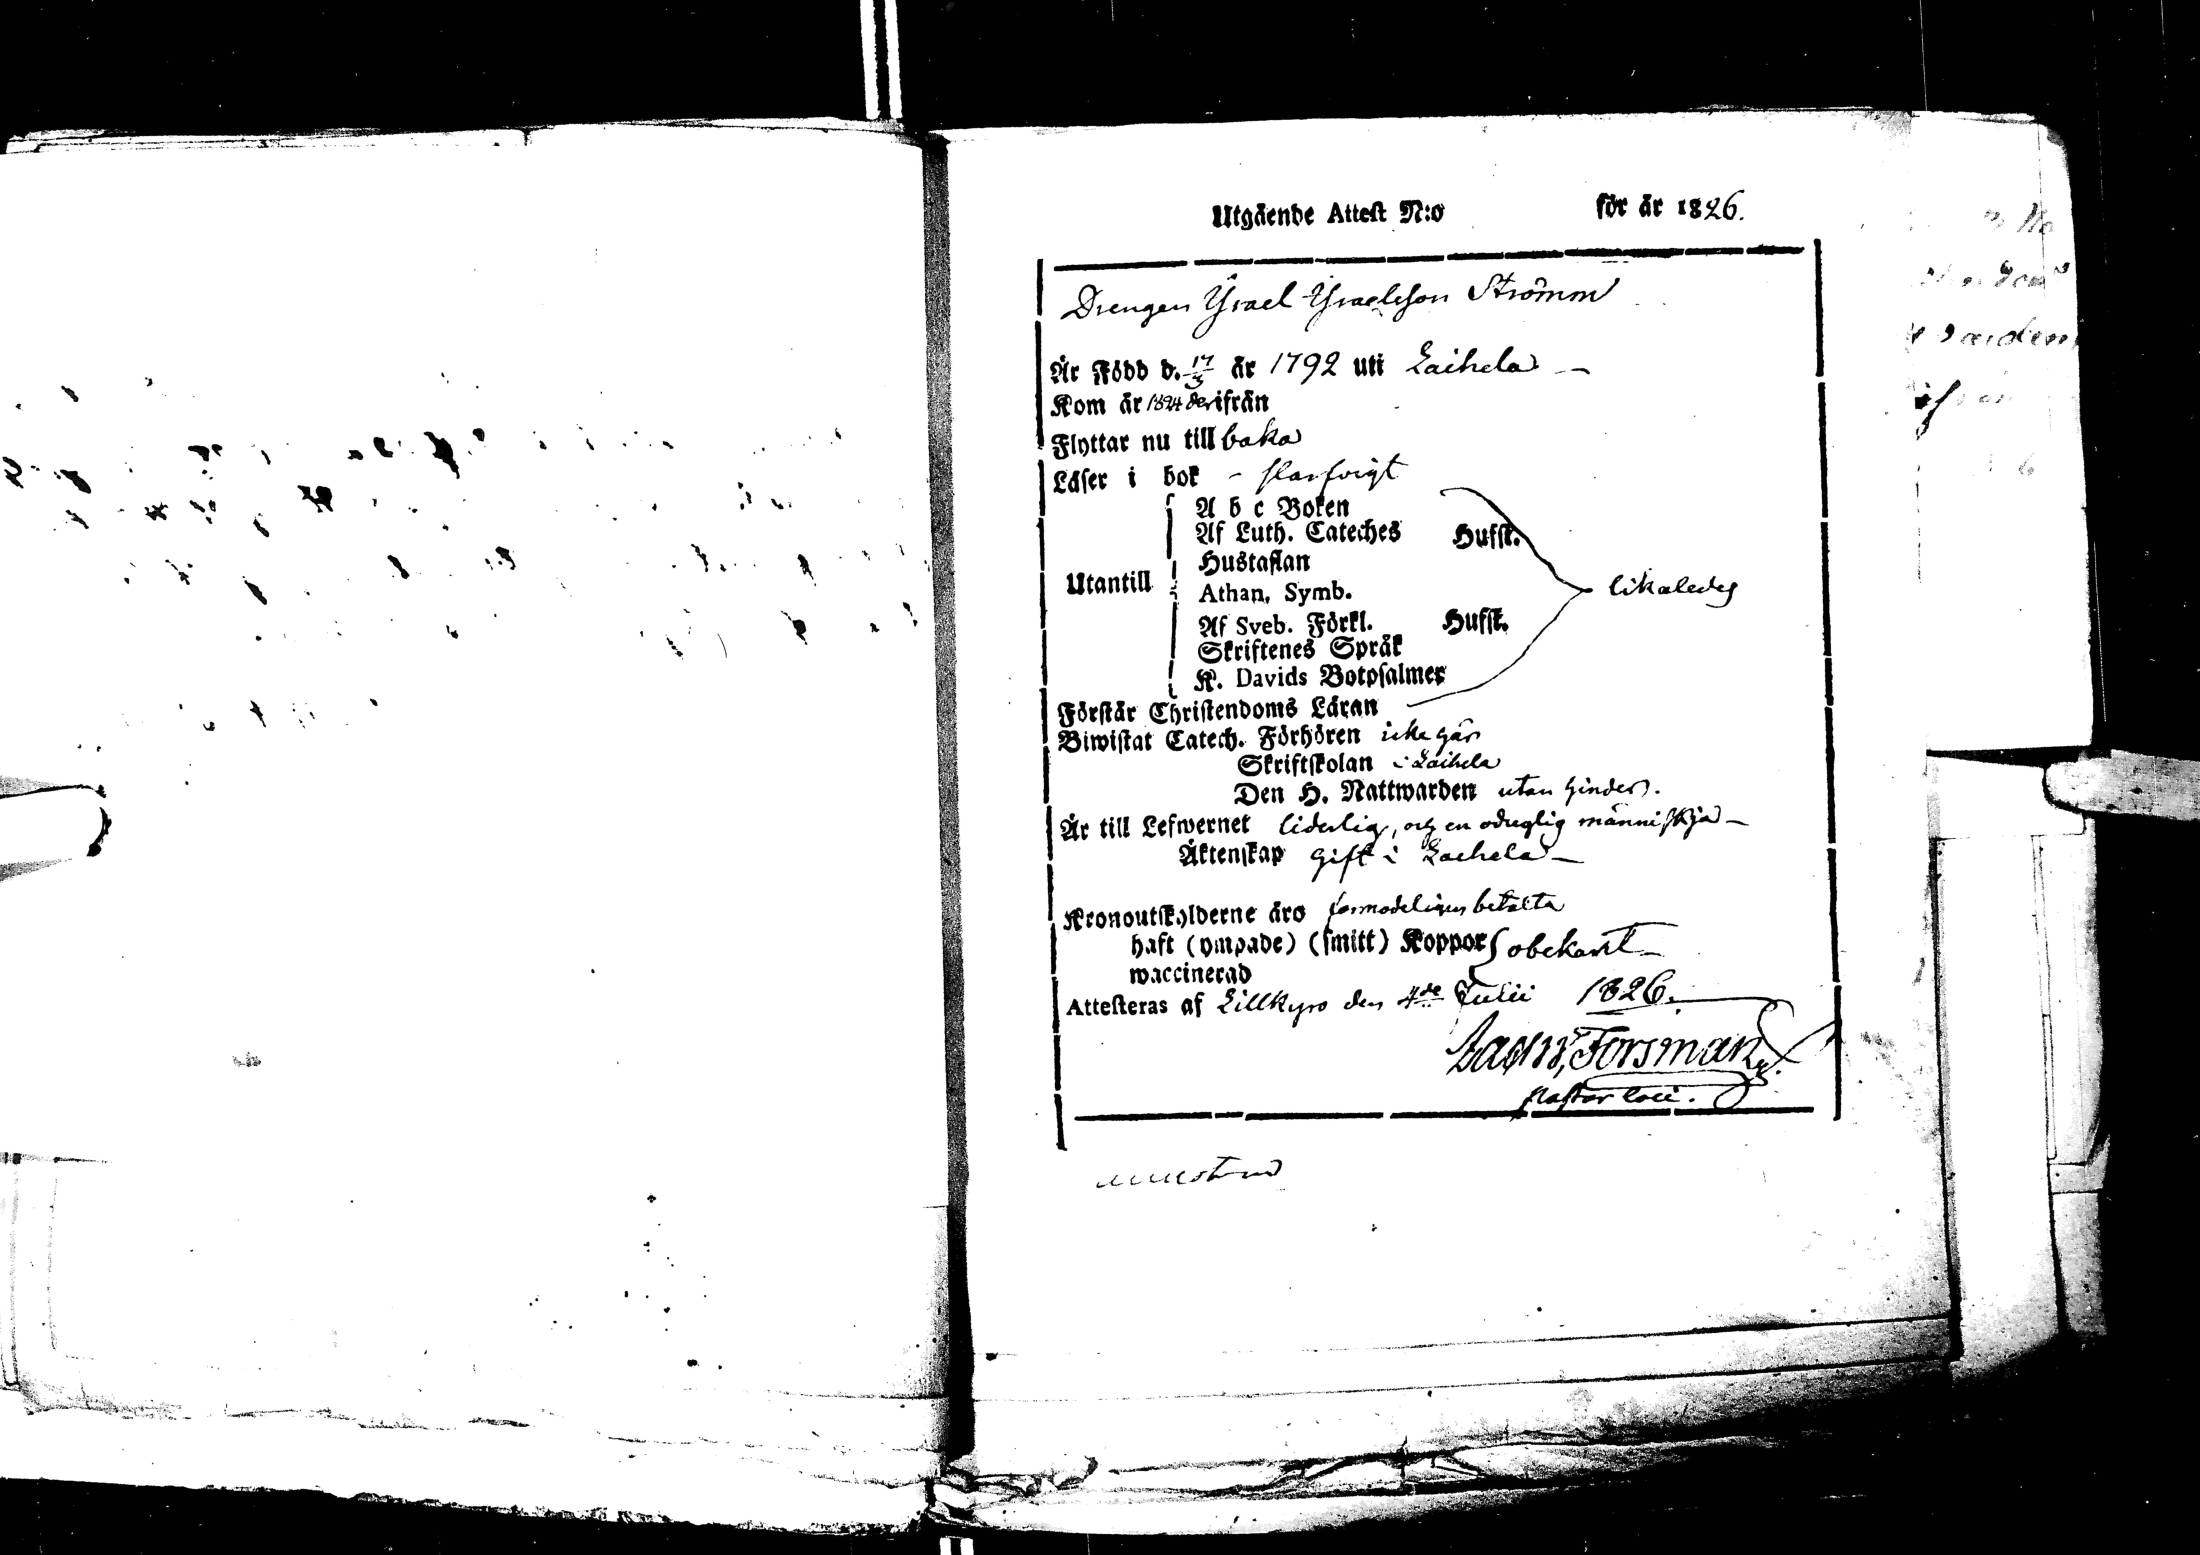 Utgående Attest N:o för år 1826.
Drengen Ysrael Ysraelsson Strömm
Är Född d. 17/3 år 1792 uti Laihela
Kom år 1824 derifrån
Flyttar nu till baka
Läser i bok - slarfvigt
A b c Boken
Af Luth. Cateches Hufst.
Hustaflan
Utantill Athan. Symb. likaledes
Af Sveb. Förkl. Hufst.
Skriftenes Språk
K. Davids Botpsalmer
Förstår Christendoms Läran
Biwistat Catech. Förhören icke här
Skriftskolan i Laihela
Den H. Nattwarden utan hinder.
Är till Lefwernet liderlig, och en oduglig människja
Äktenskap gift i Laihela
Kronoutskylderne äro formodeligen betalta
haft (ympade) (smitt) Koppor obekant
waccinerad
Attesteras af Lillkyro den 4de Julii 1826.
Forsman
Pastor loci.